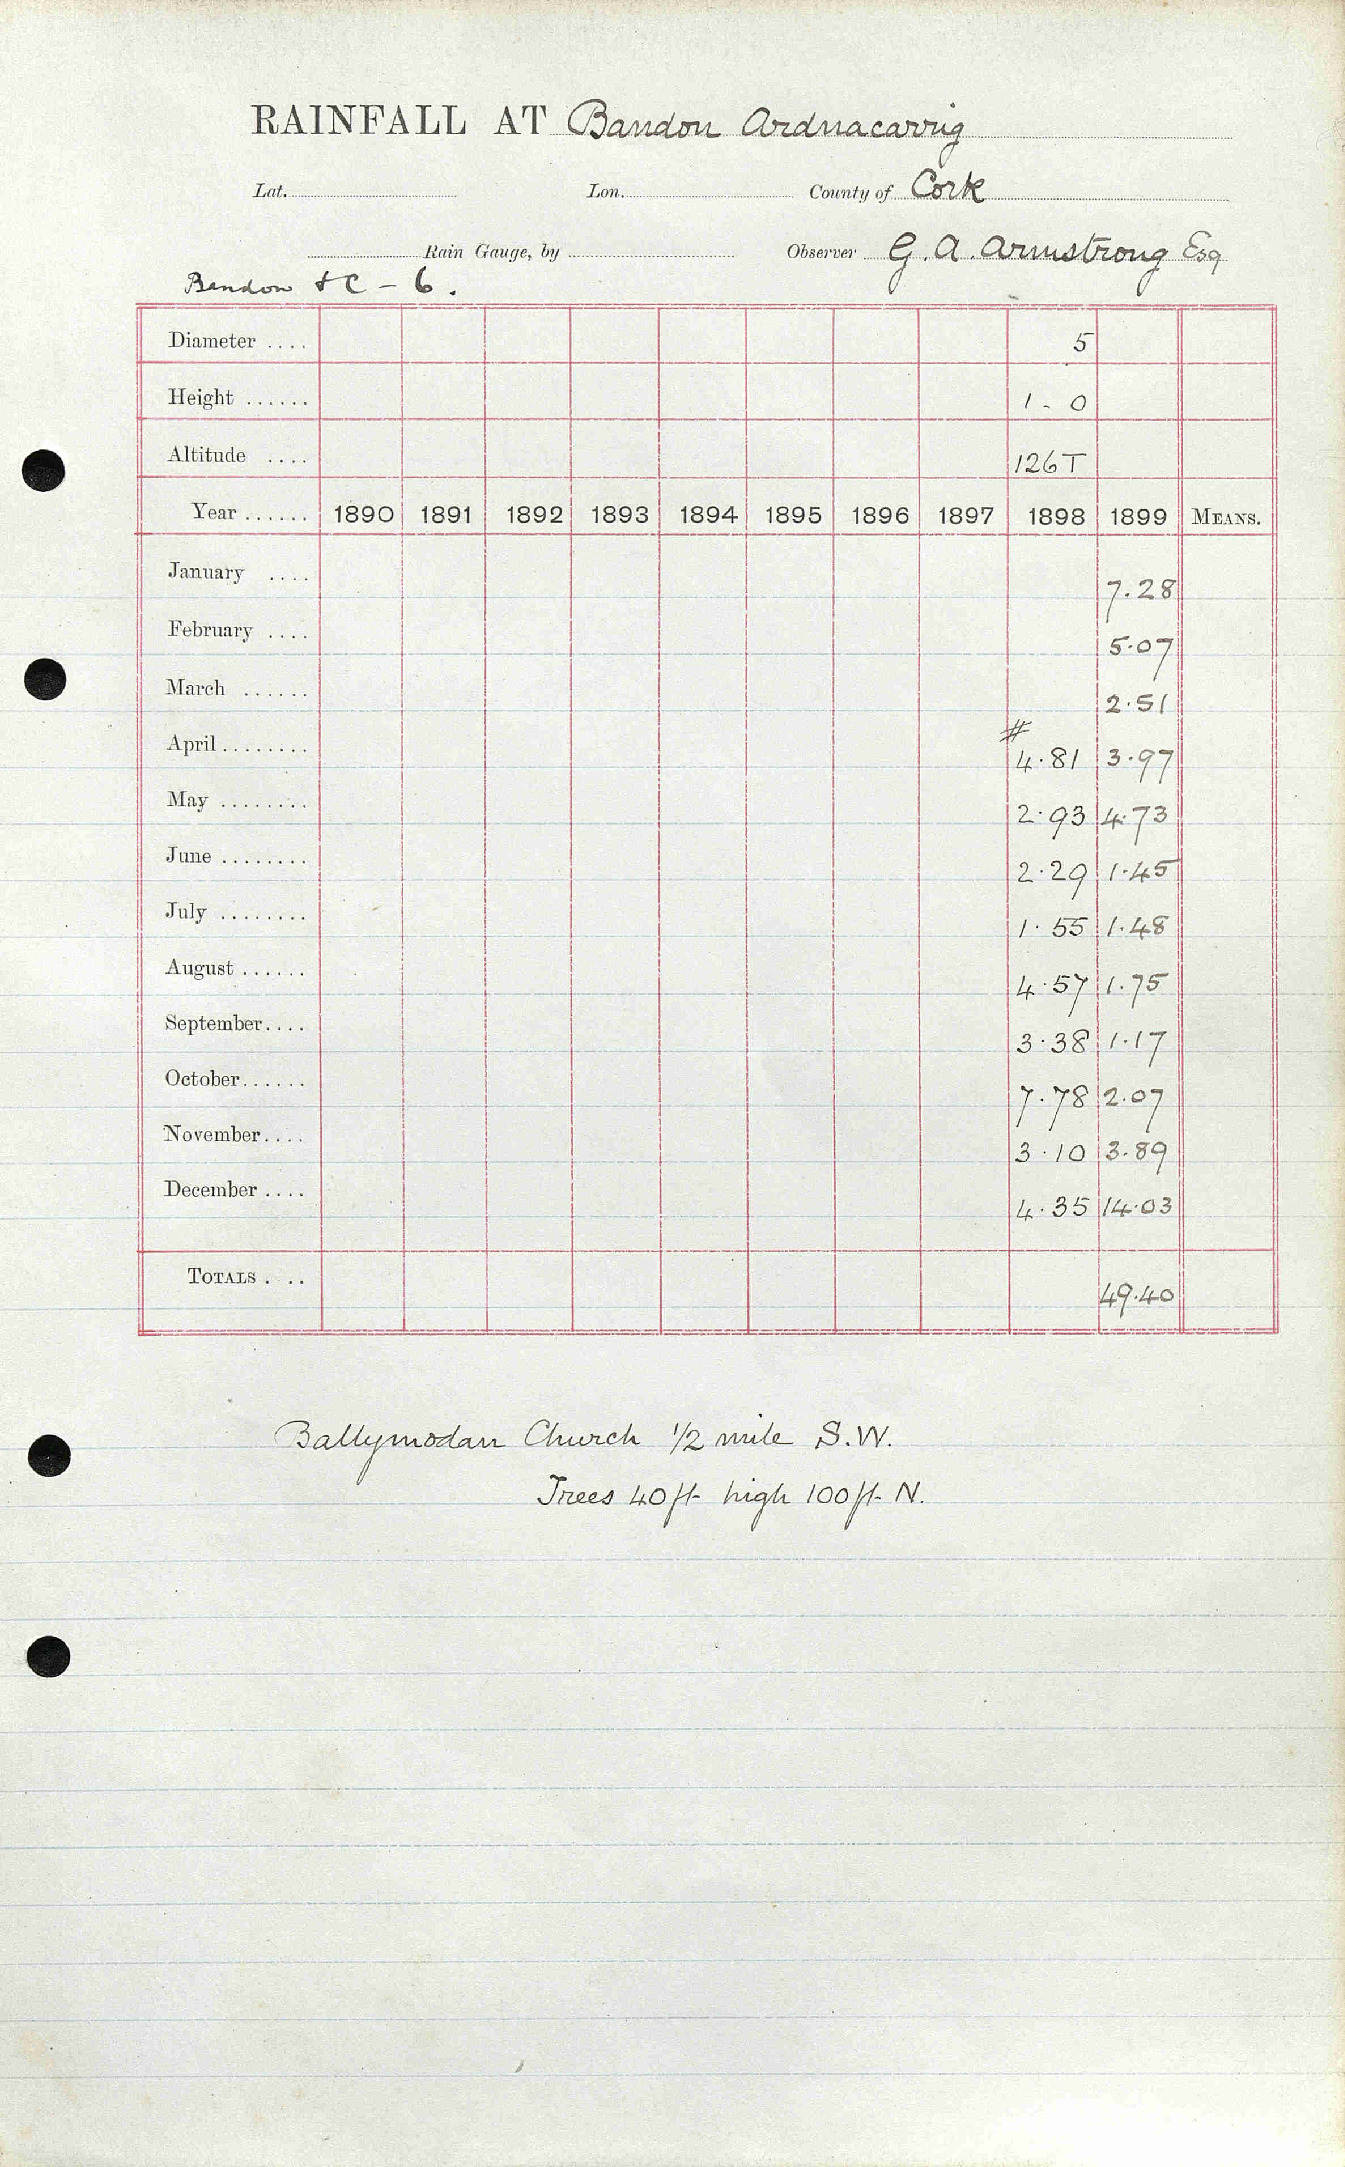 RAINFALL AT Bandon Ardnacarrig
Lat. Lon. County of Cork
Rain Gauge, by Observer G. A. Armstrong Esq
Bandon &C - 6.
Diameter .... 5
Height ...... 1 - 0
Altitude .... 126T
Year ...... 1890 1891 1892 1893 1894 1895 1896 1897 1898 1899 MEANS.
January .... 7.28
February .... 5.07
March ...... 2.51
#
April ........ 4.81 3.97
May ........ 2.93 4.73
June ........ 2.29 1.45
July ........ 1.55 1.48
August ...... 4.57 1.75
September.... 3.38 1.17
October...... 7.78 2.07
November.... 3.10 3.89
December .... 4.35 14.03
TOTALS . .. 49.40
Ballymodan Church 1/2 mile S.W.
Trees 40ft high 100ft N.